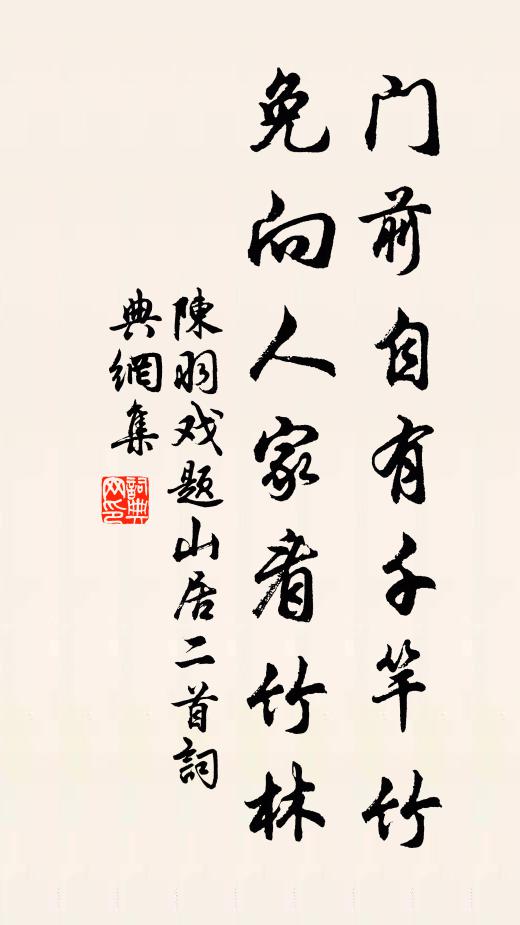 门前自有千竿竹
免向人家看竹林
陳羽戏题山居二首詞
典網集
詞典
网印